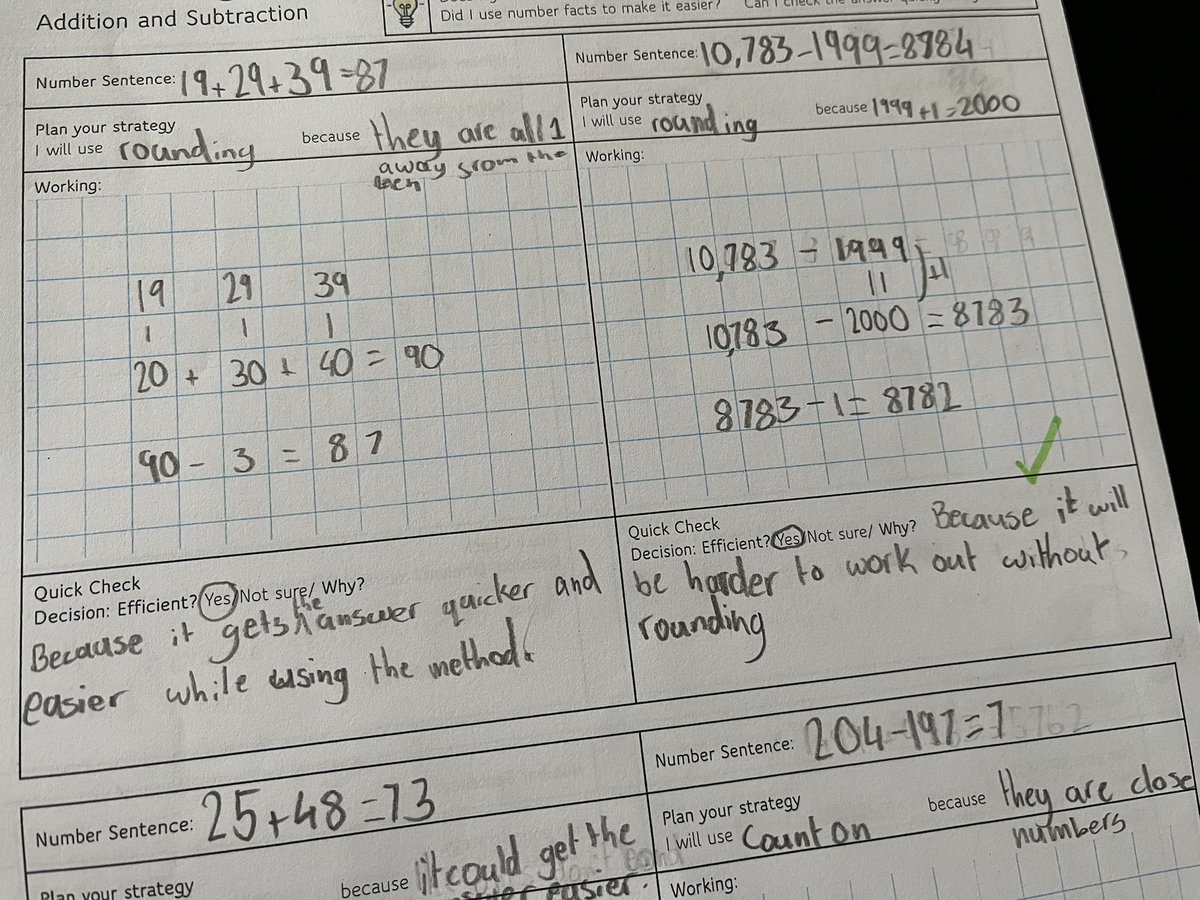 Addition and Subtraction
Did I use number facts to make it easier?
Number Sentence: 19+29+39=87
Plan your strategy
I will use rounding because they are all 1
away from the
ten
Working:
19 29 39
1 1 1
20 + 30 + 40 = 90
90 - 3 = 87
Quick Check
Decision: Efficient? Yes/Not sure/ Why?
Because it gets the answer quicker and
easier while using the method.
Number Sentence: 10,783-1999=8784
Plan your strategy
I will use rounding because 1999+1=2000
Working:
10,783 - 1999
11 +1
10,783 - 2000 = 8783
8783-1= 8782
Quick Check
Decision: Efficient? Yes/Not sure/ Why? Because it will
be harder to work out without
rounding
Number Sentence: 25+48=73
Plan your strategy
because it could get the
easier.
Number Sentence: 204-197=7
Plan your strategy
I will use Count on because they are close
numbers
Working: